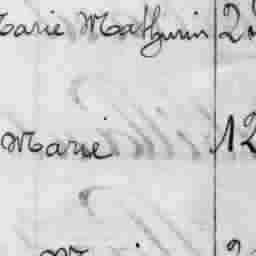 Marie Mathurin 2
Marie 12